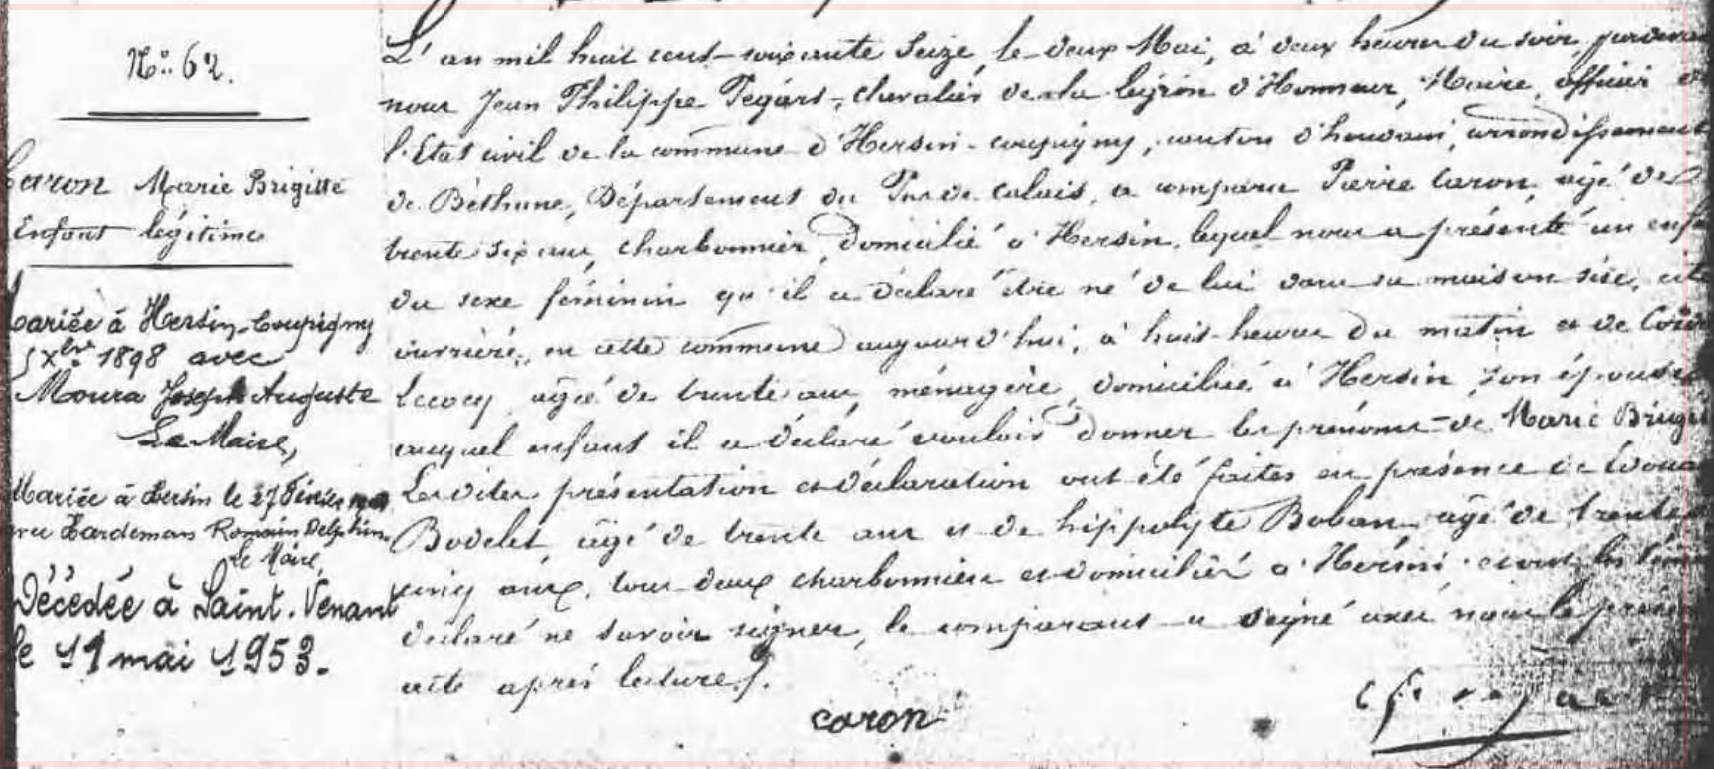 N° 62.
Caron Marie Brigitte
Enfant légitime
Mariée à Hersin-Coupigny
5 Xbre 1898 avec
Moura Joseph Auguste
Le Maire,
Mariée à Hersin le 27 Février
avec Hardeman Romain Delphin
Le Maire,
Décédée à Saint-Venant
le 11 mai 1953.
L'an mil huit cent soixante Seize, le deux Mai, à deux heures du soir, pardevant
nous Jean Philippe Ségard, chevalier de la légion d'Honneur, Maire, officier de
l'Etat civil de la commune d'Hersin-Coupigny, canton d'houdain, arrondissement
de Béthune, Département du Pas-de-Calais, a comparu Pierre Caron, agé de
trente six ans, charbonnier, domicilié à Hersin, lequel nous a présenté un enfant
du sexe féminin qu'il a déclaré être né de lui dans sa maison sise, cité
ouvrière, en cette commune aujourd'hui, à huit heures du matin et de
Lecocq, agée de trente ans, ménagère, domiciliée à Hersin, son épouse
auquel enfant il a déclaré vouloir donner les prénoms de Marie Brigitte
Lesdites présentation et déclaration ont été faites en présence de Edouard
Bodelet, agé de trente ans et de hippolyte Boban, agé de trente
cinq ans, tous deux charbonniers et domiciliés à Hersin. et ont les témoins
déclaré ne savoir signer, le comparant a signé avec nous le présent
acte après lecture.
caron